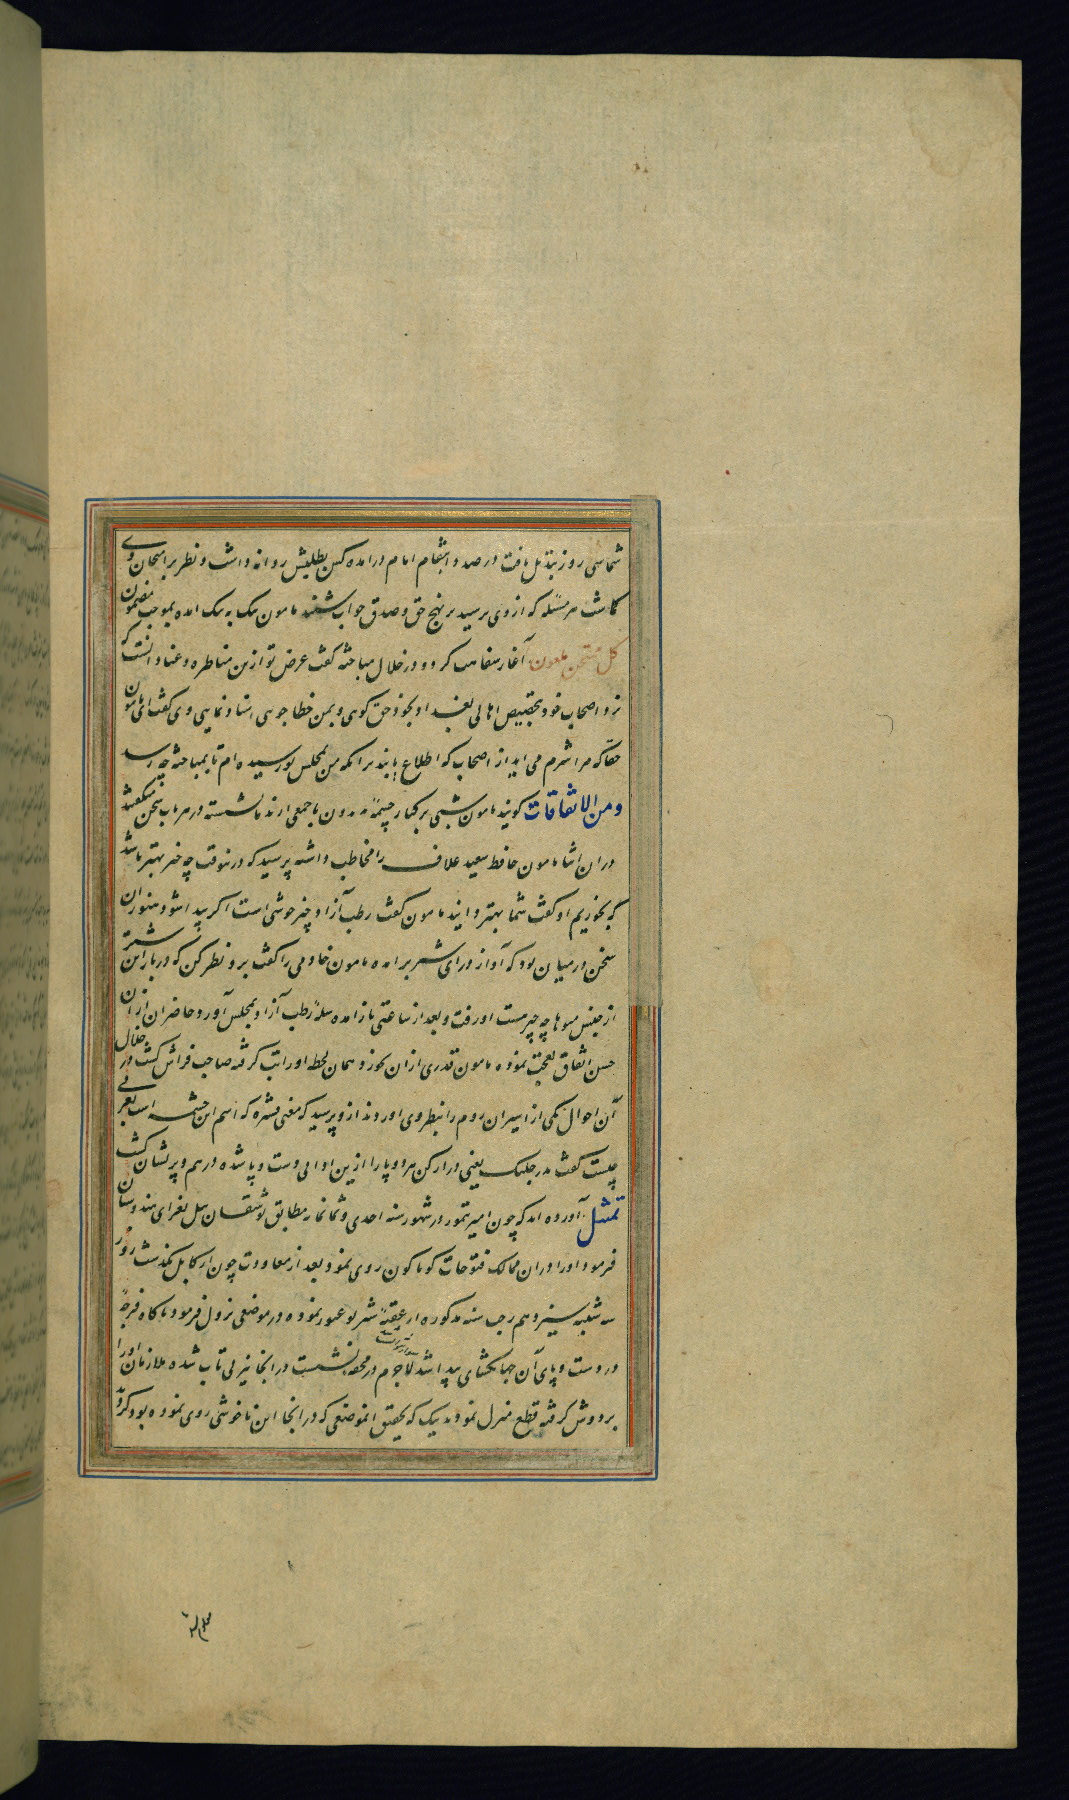 شماسی روز بتذلل یافت درصد و انتقام امام درآمده کس بطلبش روانه داشت و نظر بر امتحان وی
کاشت هر مسئله که از وی پرسید بر نهج حق و صدق جواب شنید مامون تنک به تنک آمده بموجب مضمون
کل ممتحن ملعون آغاز سفاهت کرد و در خلال مباحثه گفت غرض تو ازین مناظره و عناد آنست که
نزد اصحاب خود بتخصیص اهالی بغداد بخود حق گوی و بمن خطا جویی اسناد نمایی وی گفت ای مامون
حقا که مرا شرم می آید از اصحاب که اطلاع یابند بر آنکه من بمجلس تو رسیده ام تا بمباحثه چه رسد
ومن الاتفاقات گویند مامون شبی بر کنار چشمه بدون با جمعی از ندما نشسته در هر باب سخن میگفتند
در آن اثنا مامون حافظ سعید علاف را مخاطب داشته پرسید که درینوقت چه چیز بهتر باشد
که بخوریم او گفت شما بهتر دانید مامون گفت رطب آزاد چیز خوشی است اگر پیدا شود هنوز این
سخن در میان بود که آواز درای شتر برآمد مامون خادمی را گفت برو نظر کن که در بار این شتر
از جنس میوها چه چیز هست او رفت و بعد از ساعتی باز آمده سله رطب آزاد بمجلس آورد حاضران از آن
حسن اتفاق تعجب نموده مامون قدری از آن بخورد و همان لحظه او را تب گرفته صاحب فراش گشت در خلال
آن احوال یکی از اسیران روم را بنظر وی آوردند ازو پرسید که معنی قشره که اسم این چشمه است بعربی
چیست گفت مد رجلیک یعنی دراز کن هر دو پا را ازین ادا بی دست و پا شده درهم و پریشان گشت
تمثل آورده اند که چون امیر تیمور در شهور سنه احدی و ثمانمایه مطابق توشقان ئیل بغزای هندوستان
فرمود او را در آن ممالک فتوحات گوناگون روی نمود بعد از معاودت چون از کابل بگذشت روز
سه شنبه سیزدهم رجب سنه مذکوره از عقبه شبرتو عبور نموده در موضعی نزول فرمود ناگاه قرحه
در دست و پای آن جهانگشای پیدا شد لاجرم در محفه نشست در آنجا نیز بی تاب شده ملازمان او را
بر دوش گرفته قطع منزل نمودند یک که بتحقیق آنموضعی که در آنجا این ناخوشی روی نموده بود کرد